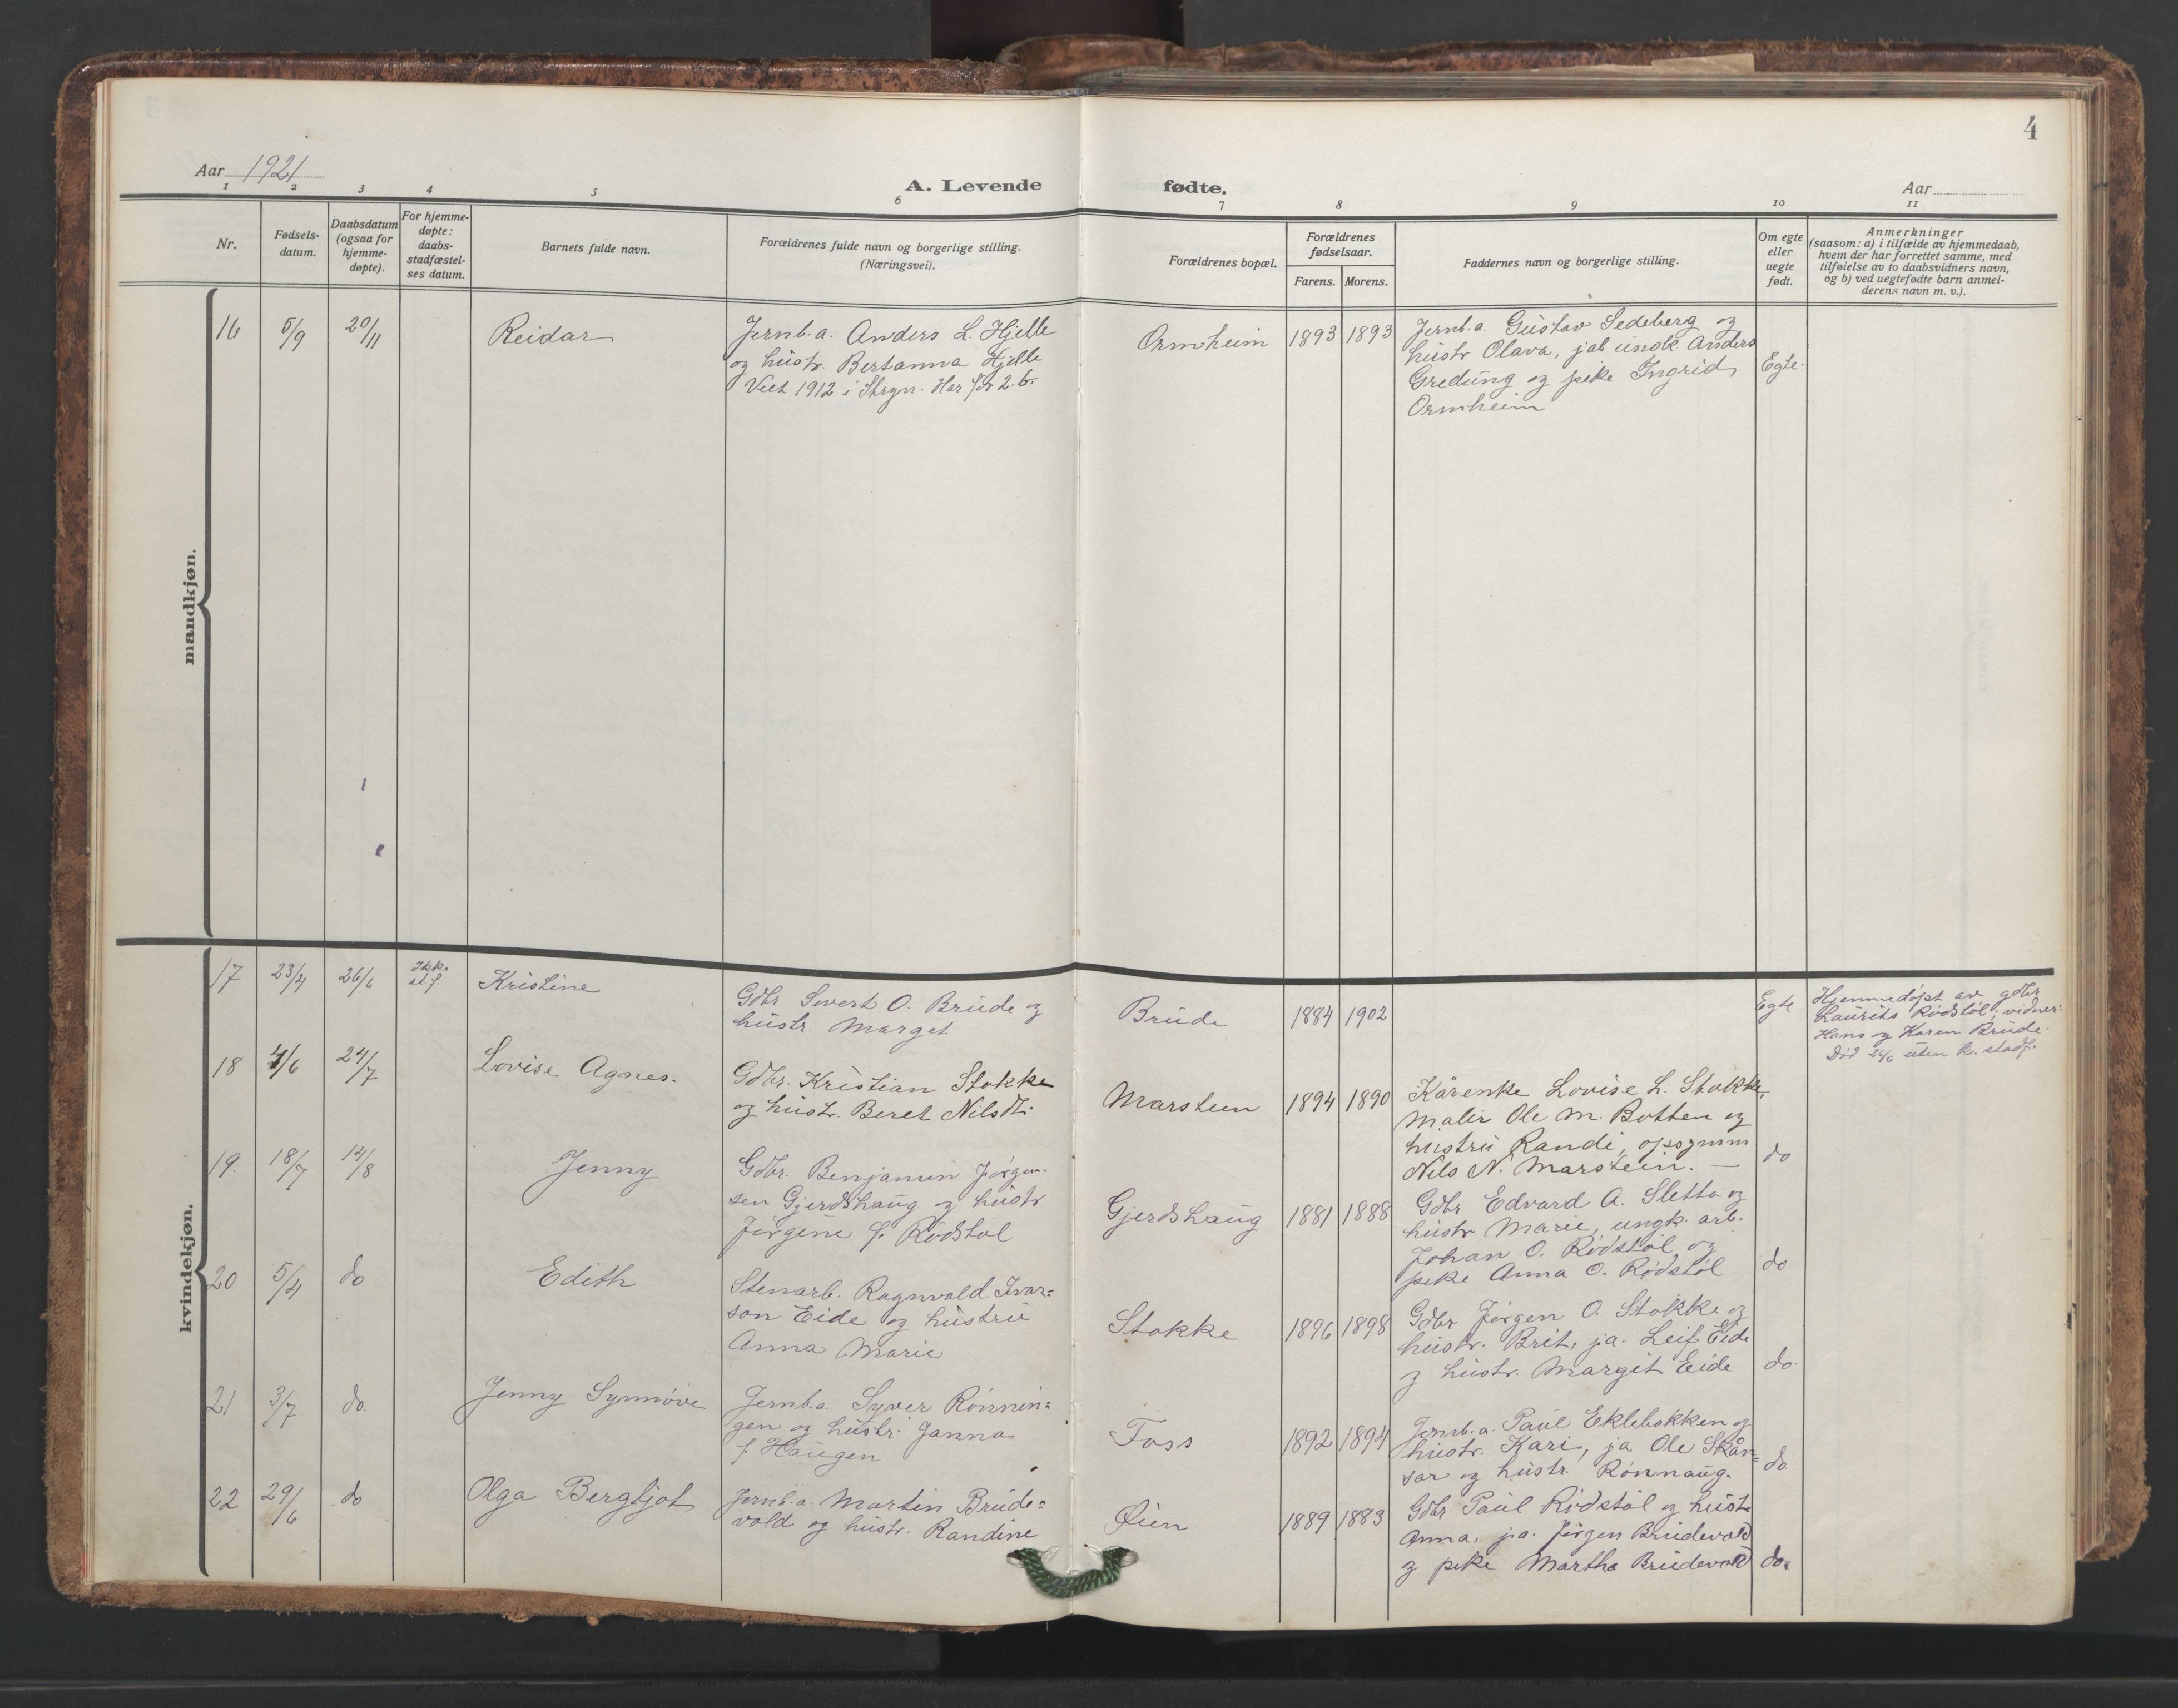 4
Aar 1921
A. Levende fødte.
Aar
1 2 3 4 5 6 7 8 9 10 11
Nr.
Fødsels-
datum.
Daabsdatum
(ogsaa for
hjemme-
døpte).
For hjemme-
døpte:
daabs-
stadfæstel-
ses datum.
Barnets fulde navn.
Forældrenes fulde navn og borgerlige stilling.
(Næringsvei).
Forældrenes bopæl.
Forældrenes
fødselsaar.
Farens. Morens.
Faddernes navn og borgerlige stilling.
Om egte
eller
uegte
født.
Anmerkninger
(saasom: a) i tilfælde av hjemmedaab,
hvem der har forrettet samme, med
tilføielse av to daabsvidners navn,
og b) ved uegtefødte barn anmel-
derens navn m. v.).
mandkjøn.
16 5/9 20/11 Reidar
Jernb.a. Anders L. Hjelle
og hustr. Bertanna Hjelle
Viet 1912 i Stryn. Har før 2 b.
Ormheim 1893 1893
Jernb.a. Gustav Sedeberg og
hustr Olava, jab ungk. Anders
Gredung og pike Ingrid
Ormheim
Egte.
kvindekjøn.
17 23/4 26/6 Ikke
st.f.
Kristine
Gdbr. Sivert O. Brude og
hustr. Marget
Brude 1884 1902
Egte
Hjemmedøpt av gdbr
Laurits Rødstøl; vidner:
Hans og Karen Brude.
Død 26/6 uten k. stadf.
18 4/6 24/7 Lovise Agnes.
Gdbr. Kristian Stokke
og hustr. Beret Nilsdt.
Marstein 1894 1890
Kårenke Lovise L. Stokke,
Maler Ole M. Botten og
hustru Randi, opsynsm
Nils N. Marstein. —
do
19. 18/7 14/8 Jenny
Gdbr. Benjamin Jørgen-
sen Gjerdshaug og hustr
Jørgine f. Rødstøl
Gjerdshaug 1881 1888
Gdbr Edvard A. Sletta og
hustr Marie, ungk. arb.
Johan O. Rødstøl og
pike Anna O. Rødstøl
do
20 5/4 do Edith
Stenarb. Ragnvald Ivar=
son Eide og hustru
Anna Marie
Stokke 1896 1898
Gdbr Jørgen O. Stokke og
hustr. Brit, ja. Leif Eide
og hustr. Margit Eide
do.
21 3/7 do Jenny Synnøve
Jernb.a. Syver Rønnin=
gen og hustr. Janna
f Haugen
Foss 1892 1894
Jernb.a. Paul Eklebakken og
hustr. Kari, ja Ole Skån=
sar og hustr. Rønnaug.
do
22 29/6 do Olga Bergljot
Jernb.a. Martin Brude=
vold og hustr. Randine
Øien 1889 1883
Gdbr Paul Rødstøl og hustr
Anna, j.a. Jørgen Brudevold
og pike Martha Brudevold
do.